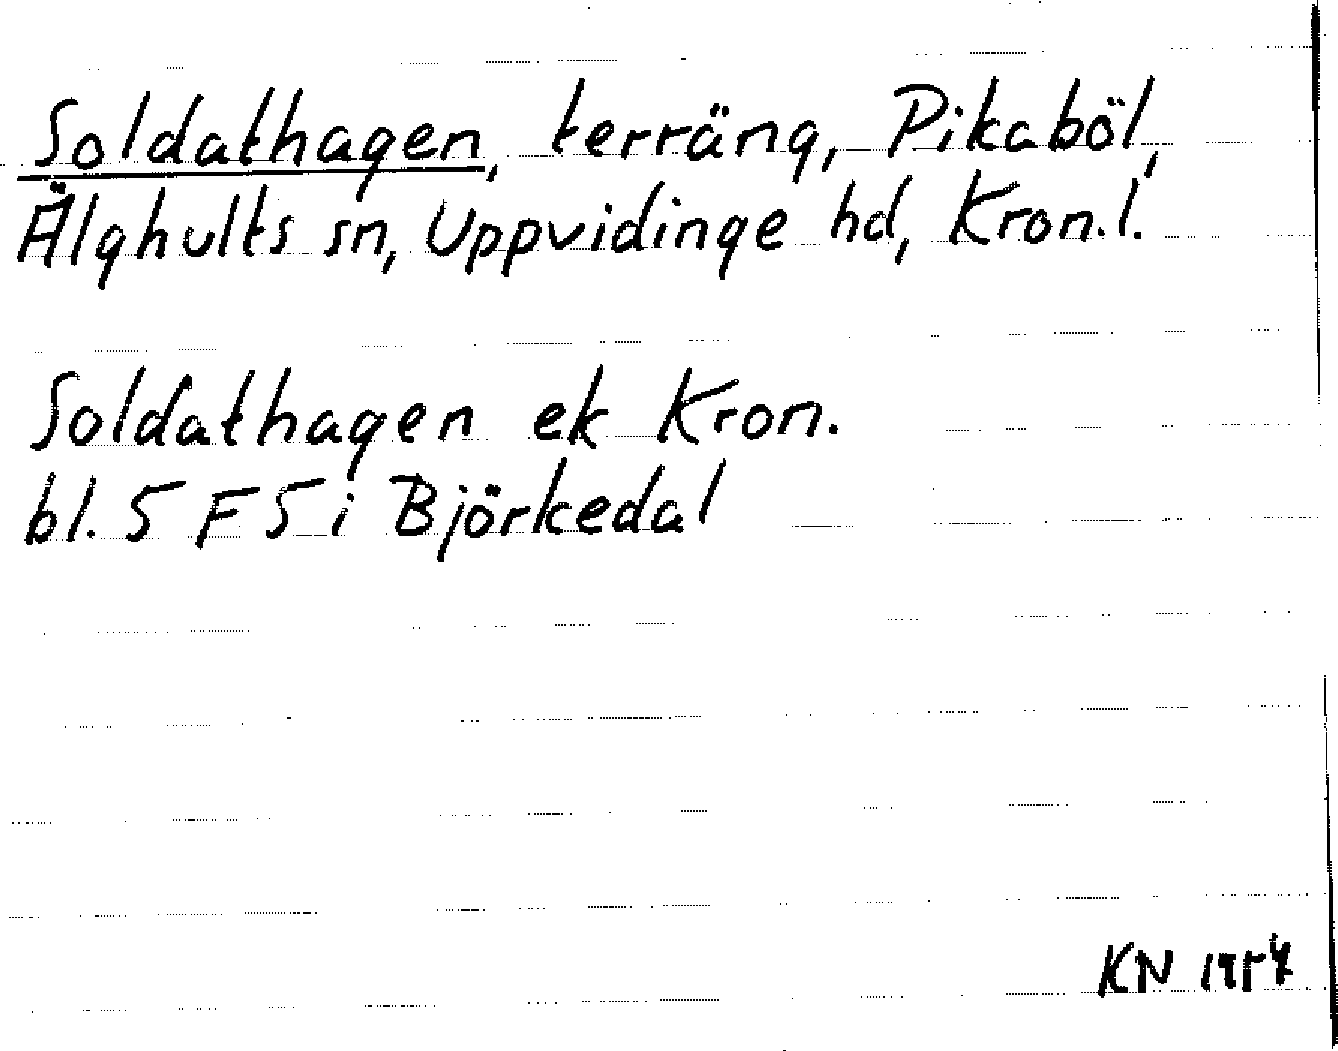 Soldathagen, terräng, Pikaböl,
Älghults sn, Uppvidinge hd, Kron.l.
Soldathagen ek Kron.
bl. 5 F 5 i Björkedal
KN 1954